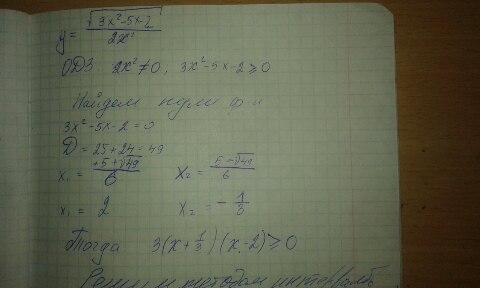 y = √(3x²-5x-2) / 2x²
ОДЗ 2x²≠0, 3x²-5x-2≥0
Найдем нули ф-и
3x²-5x-2=0
D=25+24=49
x₁ = (+5+√49)/6 x₂ = (5-√49)/6
x₁ = 2 x₂ = -1/3
Тогда 3(x+1/3)(x-2)≥0
Решим методом интервалов